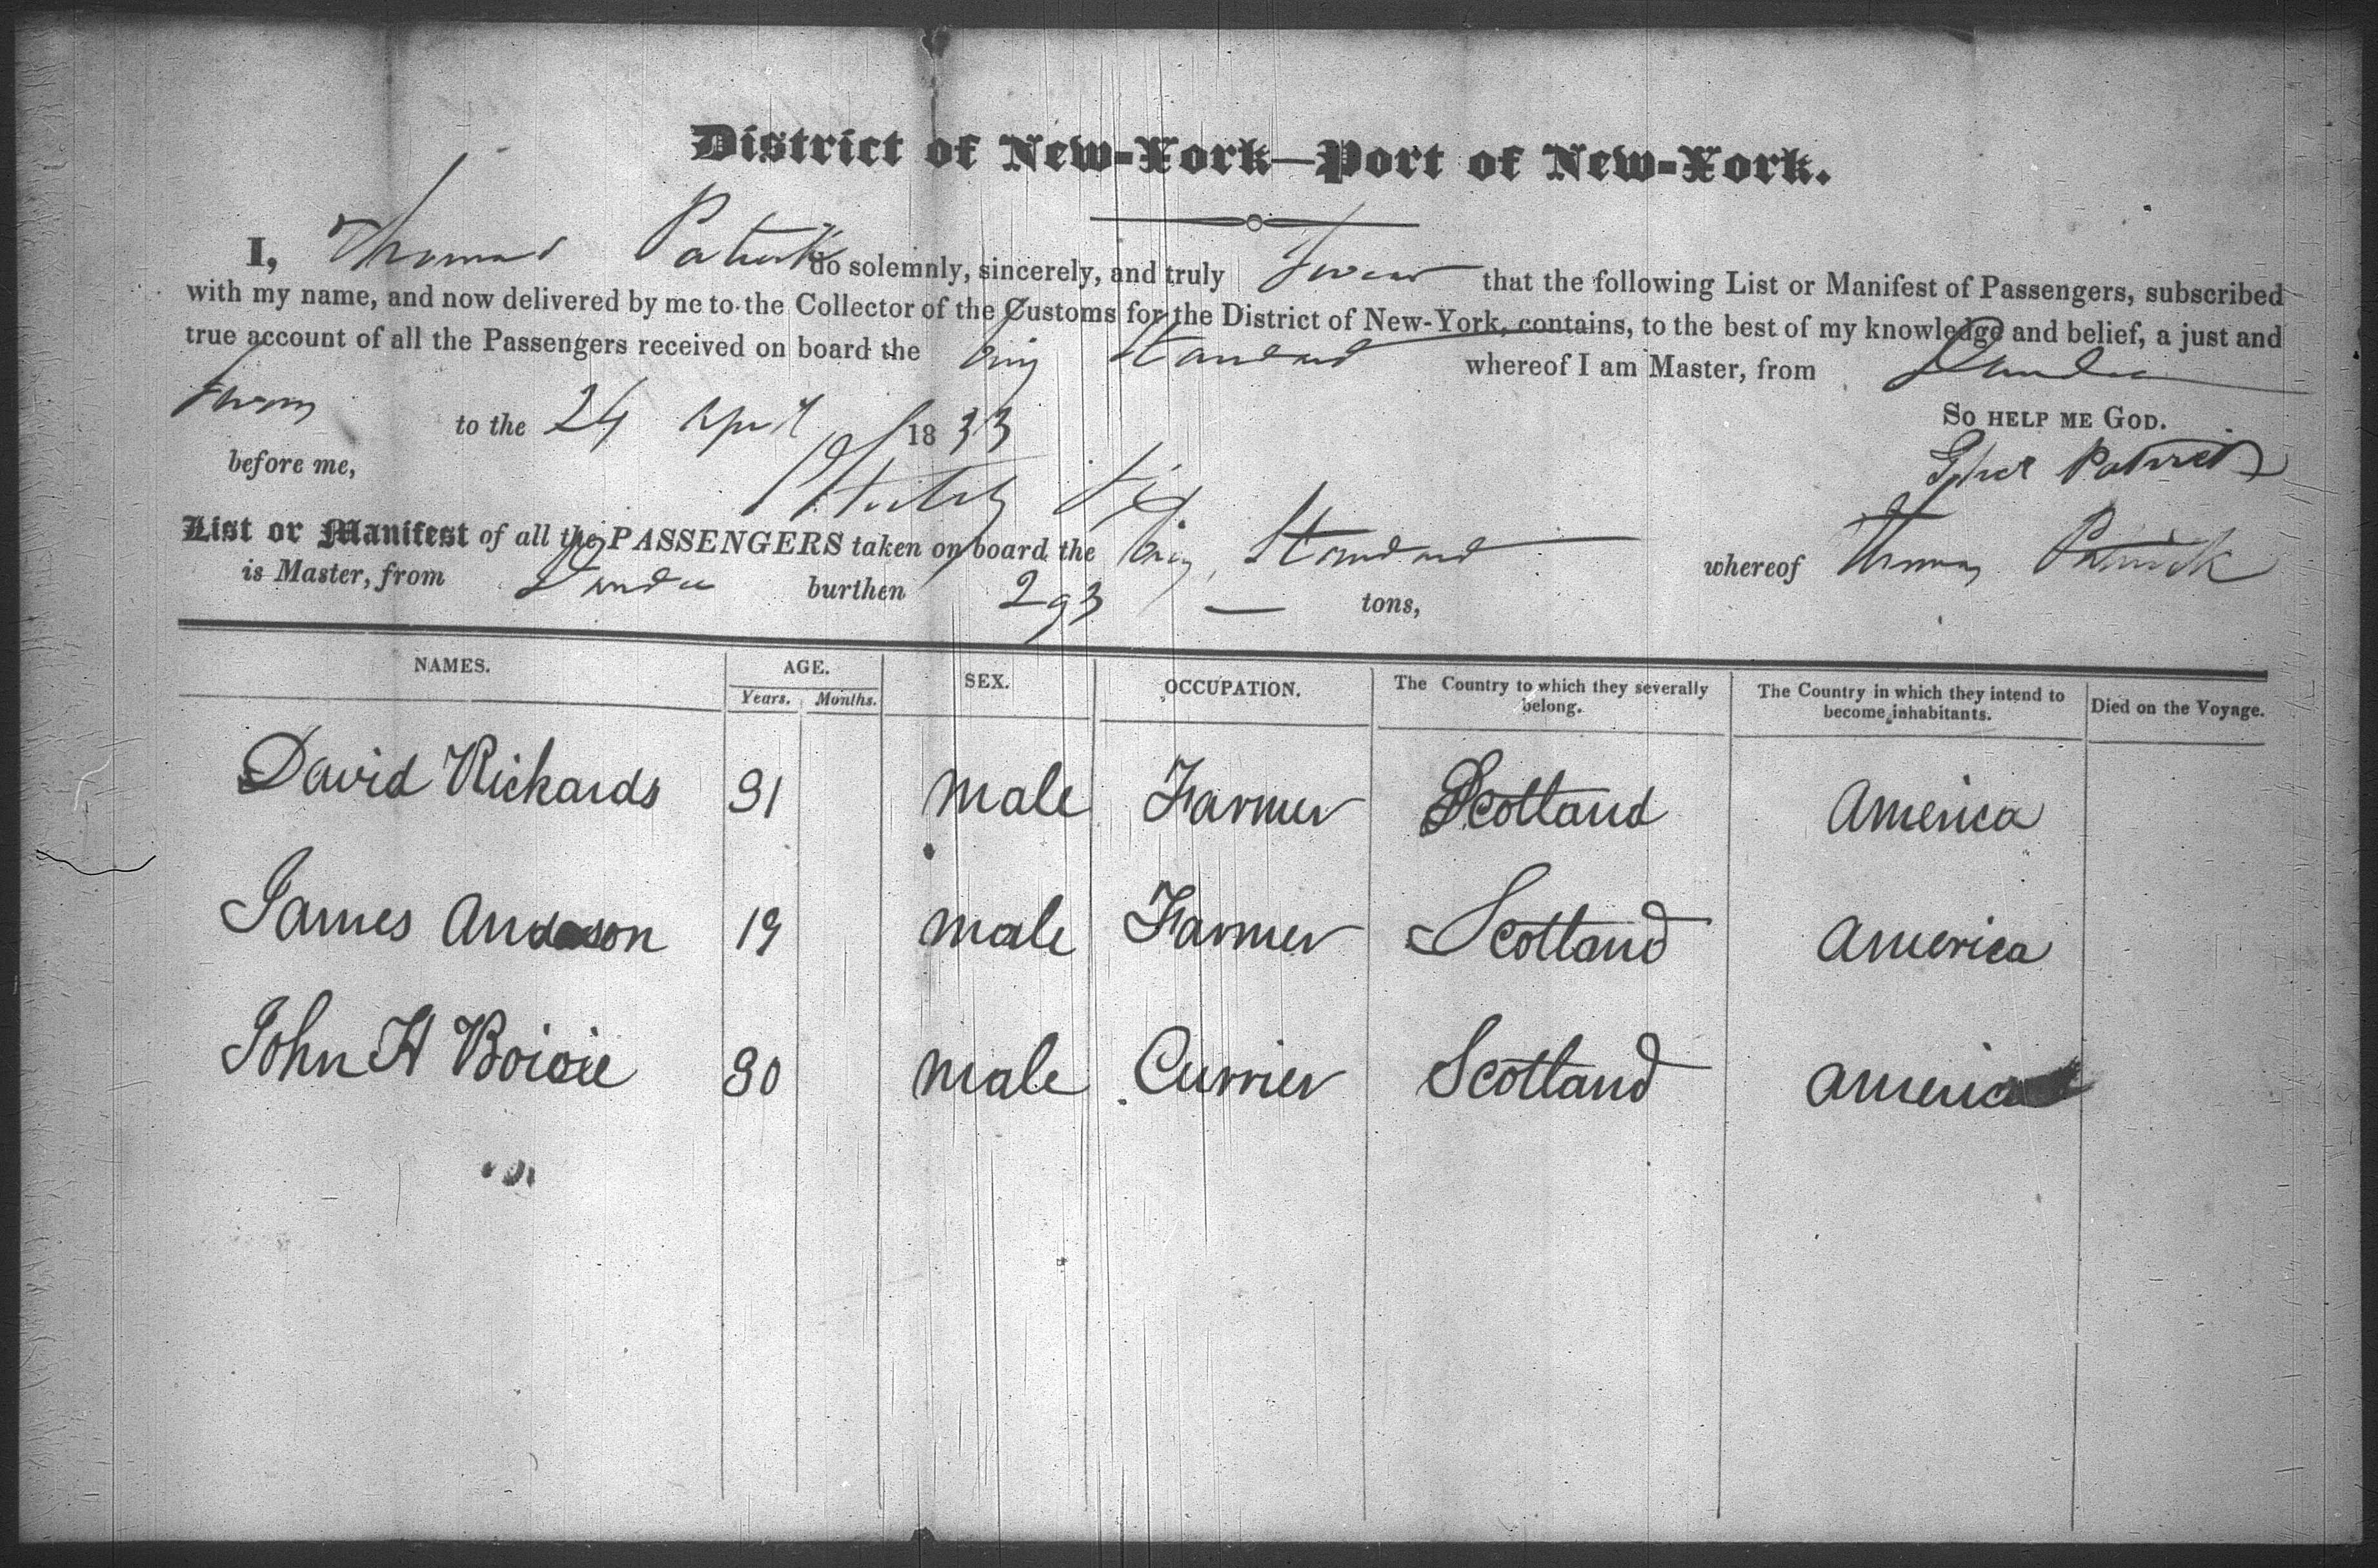 District of New-York—Port of New-York.
I, Thomas Patrick do solemnly, sincerely, and truly Swear that the following List or Manifest of Passengers, subscribed
with my name, and now delivered by me to the Collector of the Customs for the District of New-York, contains, to the best of my knowledge and belief, a just and
true account of all the Passengers received on board the Brig Standard whereof I am Master, from Dundee
Sworn to the 24 April 1833 So help me God.
before me, Patrick
List or Manifest of all the PASSENGERS taken on board the Brig Standard whereof Thomas Patrick
is Master, from Dundee burthen 293 — tons,
NAMES. AGE. SEX. OCCUPATION. The Country to which they severally belong. The Country in which they intend to become inhabitants. Died on the Voyage.
Years. Months.
David Rickards 31 male Farmer Scotland America
James Anderson 19 male Farmer Scotland America
John H 30 male Currier Scotland America